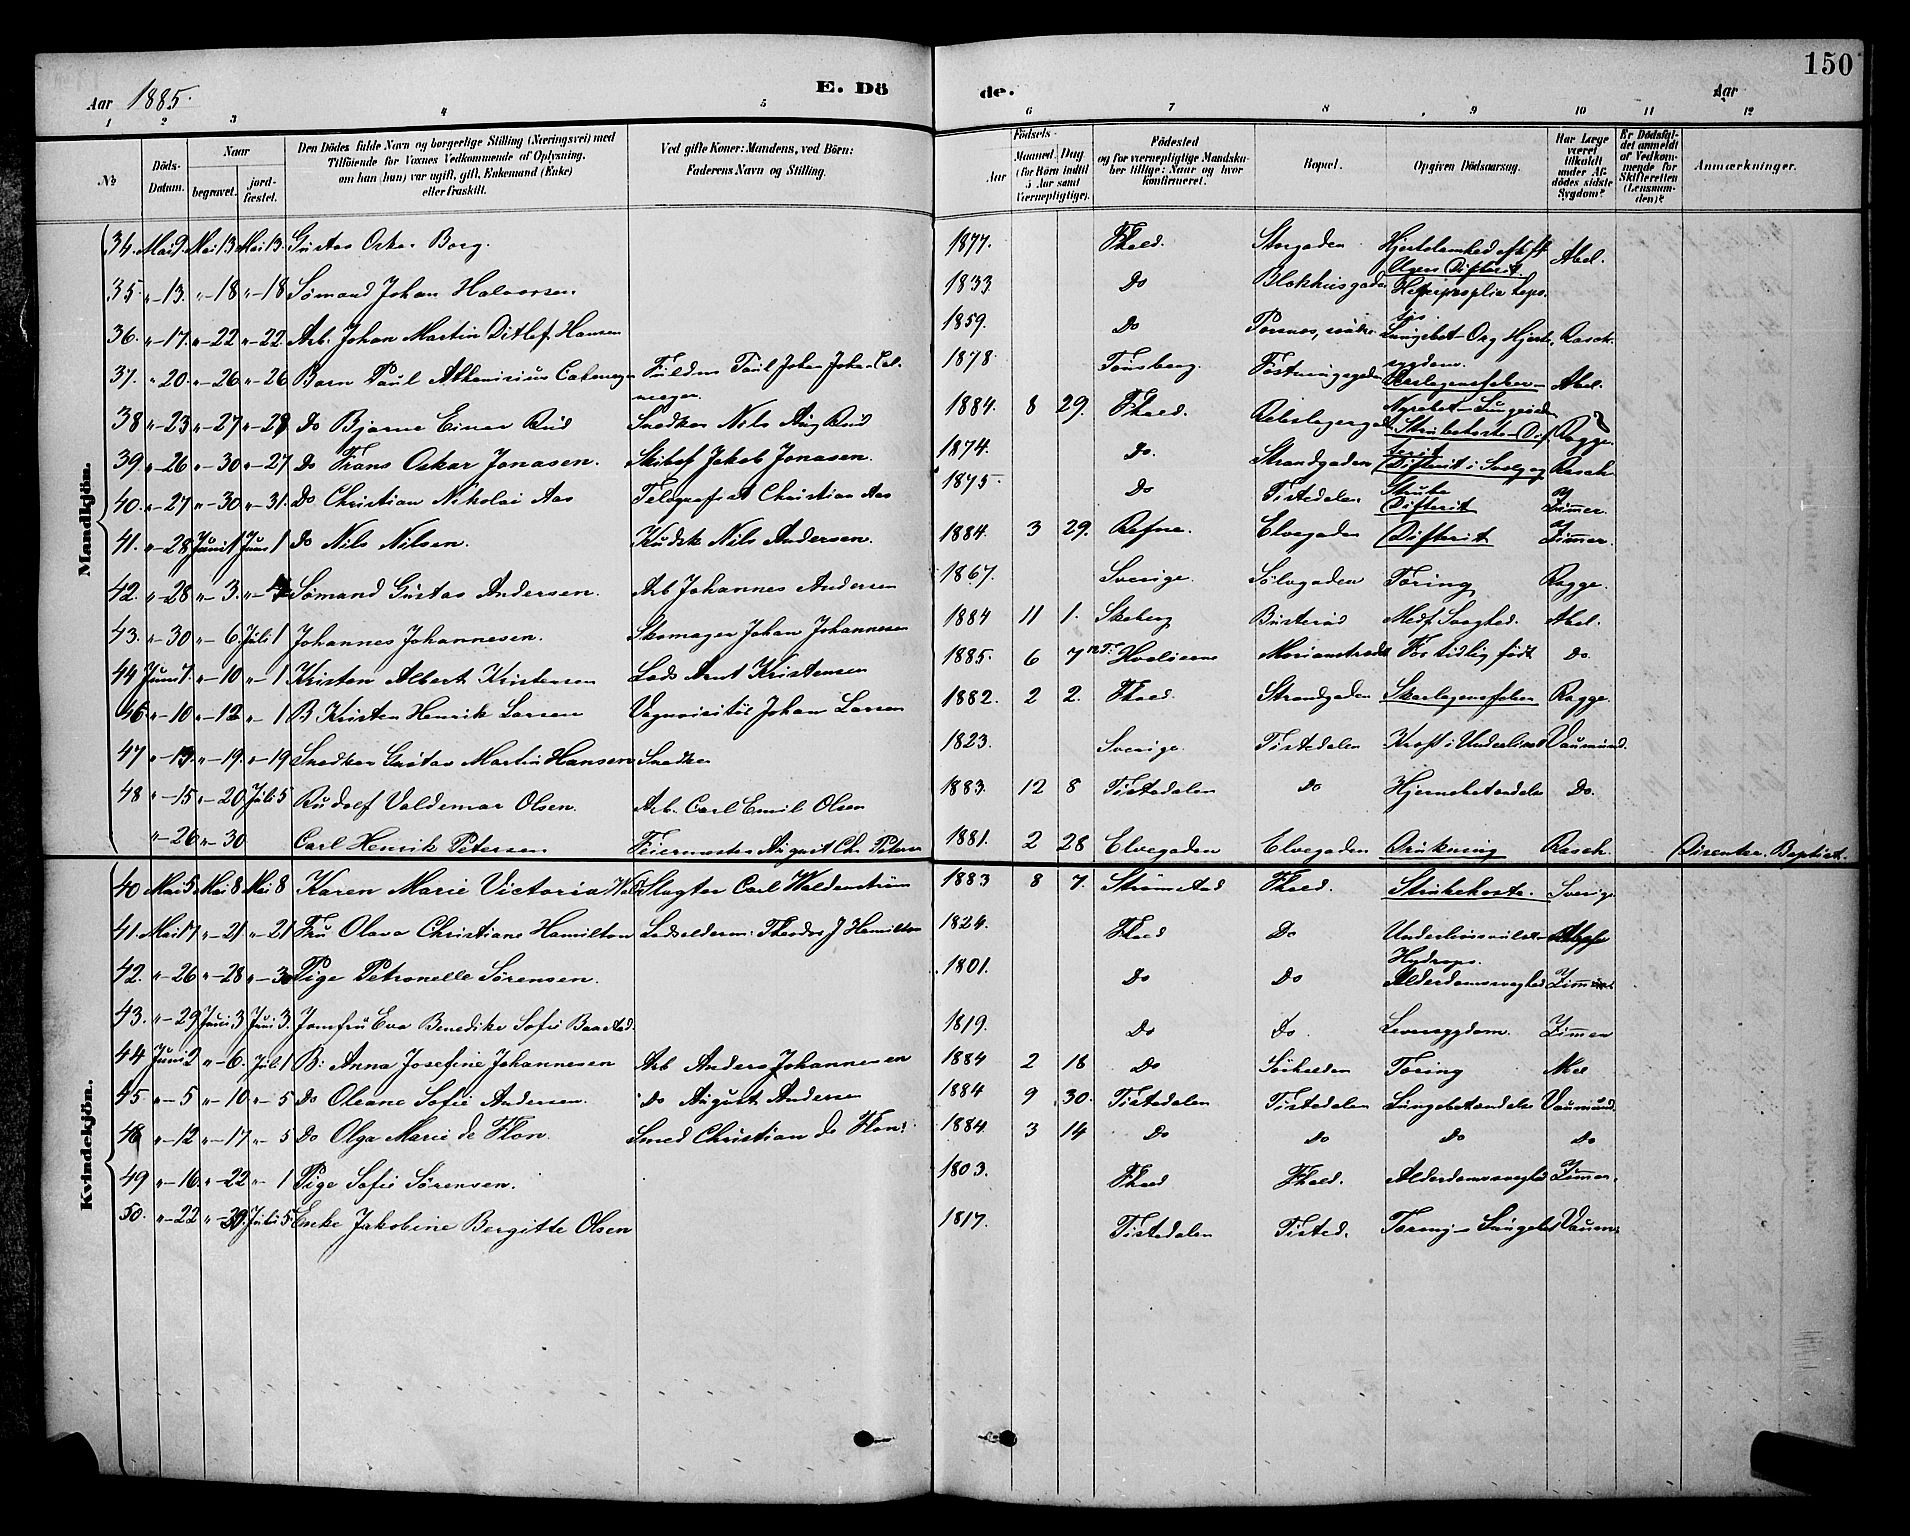 150
Aar 1885.
E. Dö
de.
Aar
1 2 3 4 5 6 7 8 9 10 11 12
No
Döds-
Datum.
Naar
begravet.
jord-
fæstet.
Den Dödes fulde Navn og borgerlige Stilling (Næringsvei) med
Tilföiende for Voxnes Vedkommende af Oplysning,
om han (hun) var ugift, gift, Enkemand (Enke)
eller fraskilt.
Ved gifte Koner: Mandens, ved Börn:
Faderens Navn og Stilling.
Födsels-
Aar
Maaned
Dag
(for Börn indtil
5 Aar samt
Værnepligtige).
Födested
og for værnepligtige Mandska-
ber tillige: Naar og hvor
konfirmeret.
Bopæl.
Opgiven Dödsaarsag.
Har Læge
været
tilkaldt
under Af-
dödes sidste
Sygdom?
Er Dödsfal-
det anmeldt
af Vedkom-
mende for
Skifteretten
(Lensman-
den)?
Anmærkninger.
Mandkjön.
34. Mai 9. Mai 13 Mai 13. Gustav Oskar Borg. 1877. Fhald. Storgaden. Abel.
35. " 13. " 18 " 18 Sømand Johan Halvorsen 1833 Do Blokhusgaden
36. " 17. " 22 " 22. Arb. Johan Martin Ditlef Hansen 1859. Do Rasch.
37. " 20. " 26 " 26 Barn Paul 1878. Tønsberg. Abel.
38 " 23 " 27 " 28 Do Bjarne Einar Rud Snedker Nils Aug Rud 1884. 8 29. Fhald. Ragge.
39 " 26 " 30 " 27 Do Frans Oskar Jonasen. Skibsf Jakob Jonasen. 1874. Do. Strandgaden Difterit i Svelg og Rasch
Strube
40. " 27 " 30 " 31. Do Christian Nikolai Aas Telegrafist Christian Aas 1875 Do Tistedalen Difterit Zimmer.
41. " 28 Juni 1 Juni 1 Do Nils Nilsen. Kudsk Nils Andersen. 1884. 3 29. Refne. Elvegaden Difterit Zimmer.
42. " 28 " 3. Sømand Gustav Andersen. Arb Johannes Andersen 1867. Sverige. Sølvgaden Tæring Ragge.
43. " 30 " 6. Juli 1 Johannes Johannesen. Skomager Johan Johannesen 1884 11 1. Skeberg Busterød Medf Svaghed. Abel.
44 Juni 7. " 10 " 1 Kristen Albert Kristensen Lods Arnt Kristensen 1885. 6 7 Hvaløerne For tidlig født Do
46 " 10 " 12 " 1 B Kristen Henrik Larsen Johan Larsen 1882. 2 2. Fhald. Strandgaden Skarlagensfeber Ragge.
47 " 13. " 19. " 19 Snedker Gustav Martin Hansen Snedker 1823. Sverige. Tistedalen Kræft i Underlivet Vaumund.
48 " 15 " 20 Juli 5 Rudolf Valdemar Olsen. Arb. Carl Emil Olsen 1883. 12 8 Tistedalen Do Hjernebetændelse Do.
" 26 " 30 Carl Henrik Petersen Feiermester August Ch. Petersen 1881. 2 28 Elvegaden Elvegaden Drukning Rasch. Disenter. Baptist.
Kvindekjön.
40 Mai 5 Mai 8 Mai 8 Karen Marie Victoria Slagter Carl Waldenstrøm 1883 8 7. Strømstad Fhald. Strubehoste. Sverige
41. Mai 17 " 21 " 21 Fru Olava Christiane Hamilton Lodsolderm. Theodor J Hamilton 1824. Fhald Do
42. " 26 " 28 " 30 Pige Petronelle Sørensen. 1801. Do Do Hydrops.
Alderdomssvaghed Zimmer
43. " 29 Juni 3 Juni 3. Jomfru Eva Benedikte Sofie Baastad. 1819. Do Do. Leversygdom. Zimmer
44 Juni 2 " 6. Juli 1 B. Anna Josefine Johannesen Arb Anders Johannesen 1884 2 18 Do Sørhalden Tæring
45. " 5 " 10. " 5 Do Oleane Sofie Andersen. Do August Andersen 1884 9 30. Tistedalen Tistedalen Lungebetændelse Vaumund.
48 " 12 " 17 " 5 Do Olga Marie de Flon. Smed Christian de Flon. 1884. 3 14 Do Do Do Do
49 " 16 " 22 " 1 Pige Sofie Sørensen. 1803. Fhald Fhald. Alderdomssvaghed Zimmer.
50. " 22 " 30 Juli 5 Enke Jakobine Bergitte Olsen 1817. Tistedalen Tisted. Tæring Vaum.